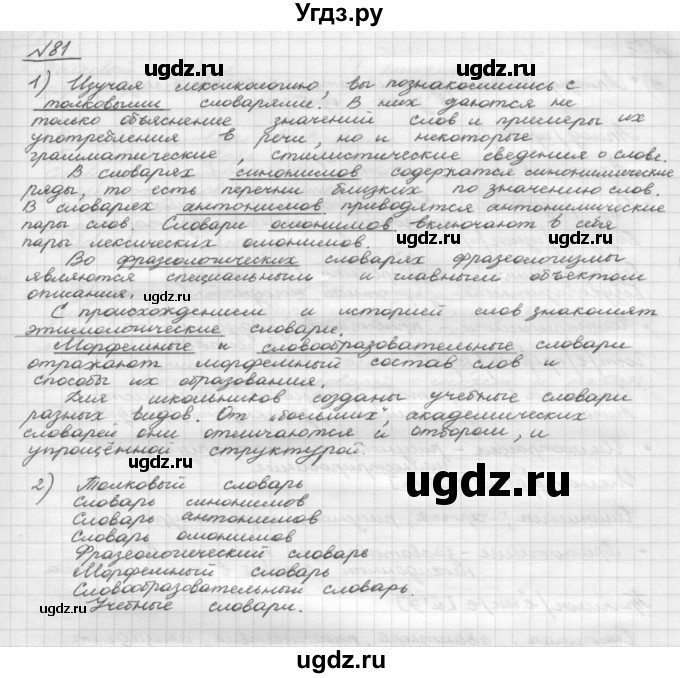 Угдз.ру
№81
1) Изучая лексикологию, вы познакомились с
толковыми словарями. В них даются не
только объяснение значений слов и примеры их
употребления в речи, но и некоторые
грамматические, стилистические сведения о слове.
В словарях синонимов содержатся синонимические
ряды, то есть перечни близких по значению слов.
В словарях антонимов приводятся антонимические
пары слов. Словари омонимов включают в себя
пары лексических омонимов.
Во фразеологических словарях фразеологизмы
являются специальным и главным объектом
описания.
С происхождением и историей слов знакомят
этимологические словари.
Морфемные и словообразовательные словари
отражают морфемный состав слов и
способы их образования.
Для школьников созданы учебные словари
разных видов. От "больших", академических
словарей они отличаются и отбором, и
упрощённой структурой.
2) Толковый словарь
Словарь синонимов
Словарь антонимов
Словарь омонимов
Фразеологический словарь
Морфемный словарь
Словообразовательный словарь.
Учебные словари.
ugdz.ru
ugdz.ru
ugdz.ru
ugdz.ru
ugdz.ru
ugdz.ru
ugdz.ru
ugdz.ru
ugdz.ru